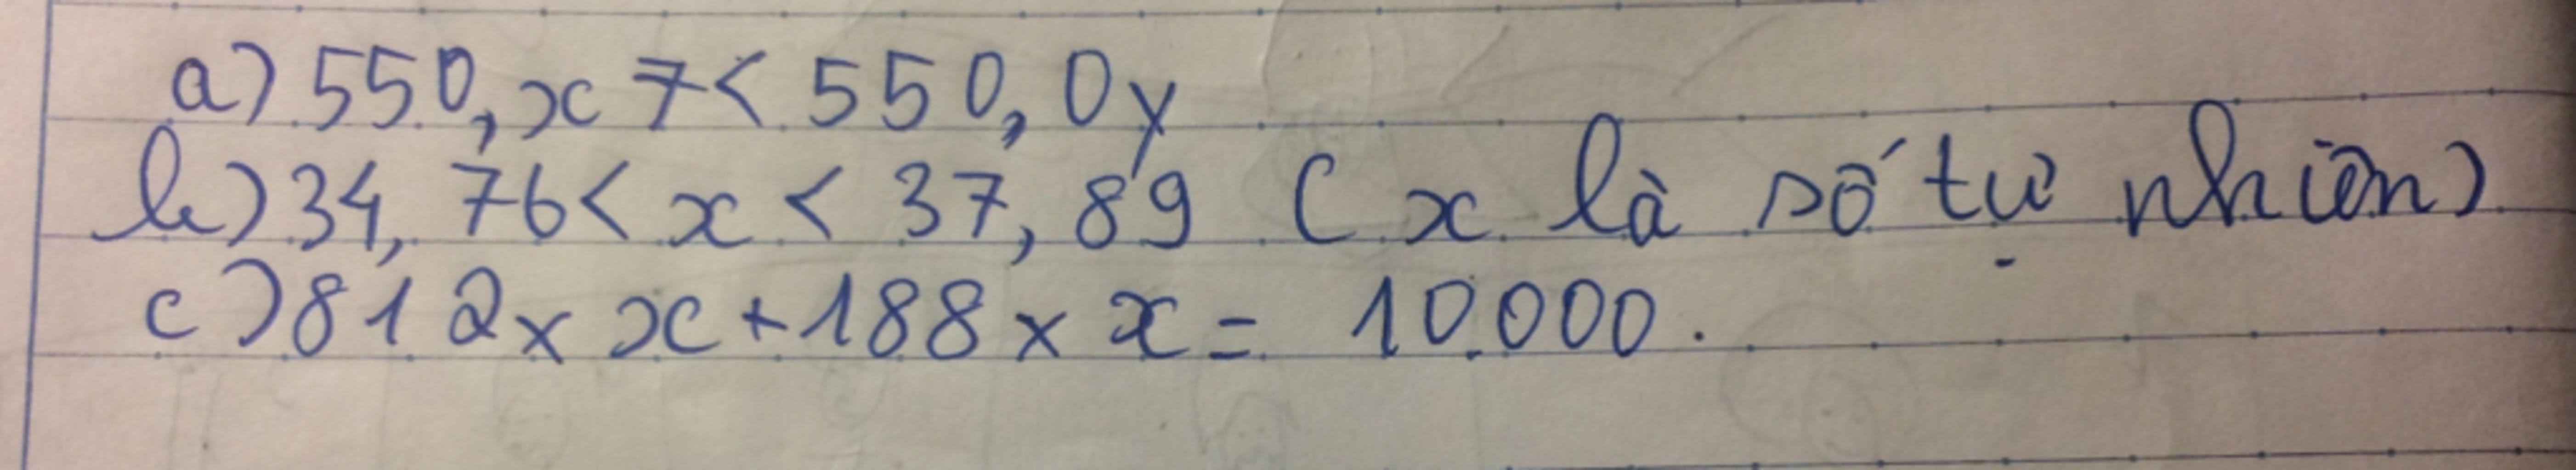 a) 550,x7 < 550,0y
b) 34,76 < x < 37,89 (x là số tự nhiên)
c) 812 × x + 188 × x = 10.000.